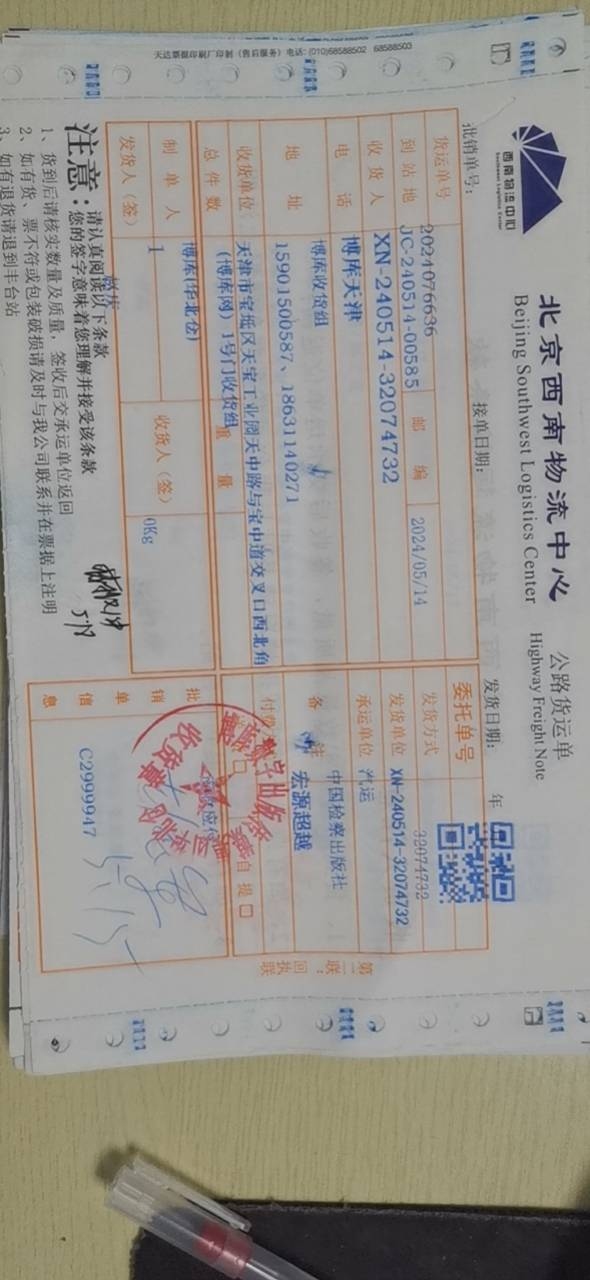 天达票据印刷厂印制（售后服务）电话：(010)68588502 68588503
西南物流中心
Southwest Logistics Center
北京西南物流中心
Beijing Southwest Logistics Center
公路货运单
Highway Freight Note
批销单号：
接单日期：
发货日期： 年
货运单号
2024076636
JC-240514-00585
到站地
XN-240514-32074732
邮 编
2024/05/14
收 货 人
博库天津
电 话
博库收货组
地 址
15901500587、18631140271
收货单位
天津市宝坻区天宝工业园天中路与宝中道交叉口西北角
(博库网) 1号门收货组
总 件 数
重 量
博库(华北仓)
制 单 人
1
收货人（签）
0Kg
发货人（签）
委托单号
32074732
发货方式
XN-240514-32074732
发货单位
汽运
承运单位
中国检察出版社
备 注
宏源超越
付费
自 提 □
批 销 单 信 息
C2999947
第二联：回执联
注意：
请认真阅读以下条款
您的签字意味着您理解并接受该条款
1、货到后请核实数量及质量，签收后交承运单位返回
2、如有货、票不符或包装破损请及时与我公司联系并在票据上注明
3、如有退货请退到丰台站